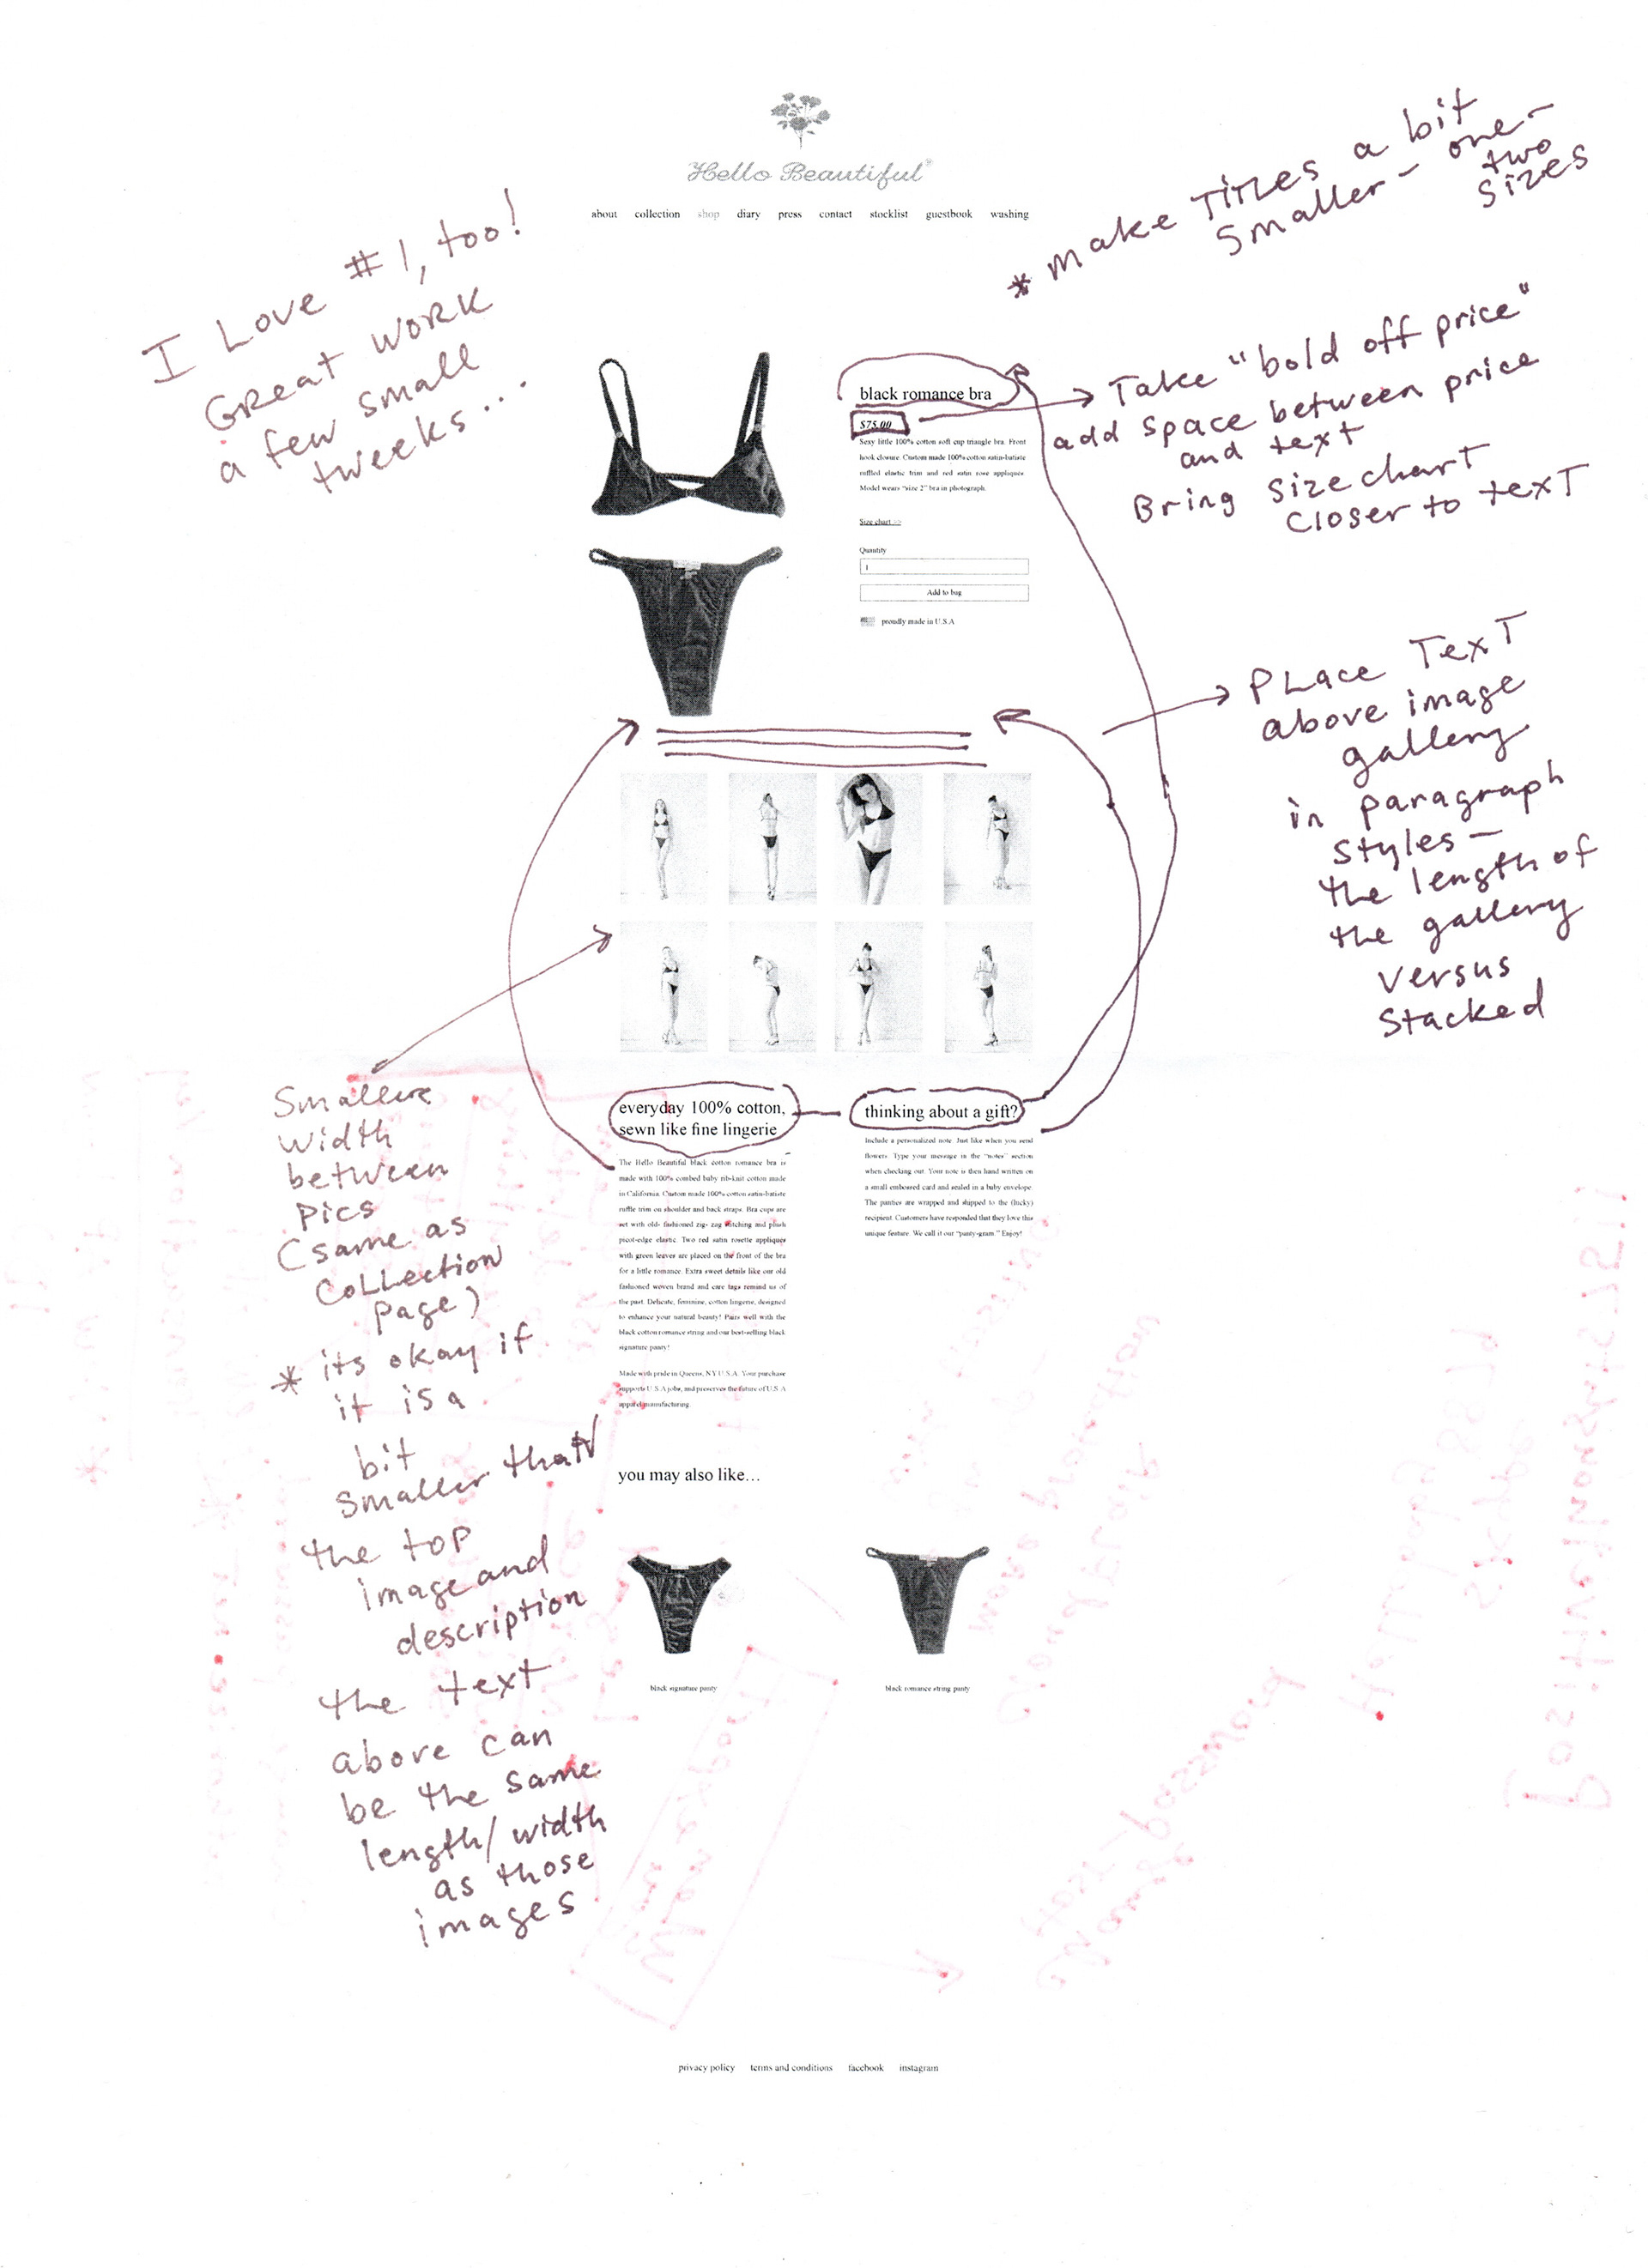 Hello Beautiful®
about collection shop diary press contact stocklist guestbook washing
I Love #1, too!
GReat WORK
a few small
tweeks...
* make TiTLES a bit
Smaller - one-
two
Sizes
black romance bra
$75.00
Sexy little 100% cotton soft cup triangle bra. Front
hook closure. Custom made 100% cotton satin-batiste
ruffled elastic trim and red satin rose appliques.
Model wears "size 2" bra in photograph.
Size chart >>
Quantity
1
Add to bag
proudly made in U.S.A
Take "bold off price"
add space between price
and text
Bring Size chart
Closer to texT
PLace TexT
above image
gallery
in paragraph
Styles -
the length of
the gallery
versus
Stacked
Smaller
width
between
Pics
(same as
CoLLection
page)
* its okay if
it is a
bit
Smaller than
the top
image and
description
the text
above can
be the same
length/width
as those
images
everyday 100% cotton,
sewn like fine lingerie
The Hello Beautiful black cotton romance bra is
made with 100% combed baby rib-knit cotton made
in California. Custom made 100% cotton satin-batiste
ruffle trim on shoulder and back straps. Bra cups are
set with old- fashioned zig- zag stitching and plush
picot-edge elastic. Two red satin rosette appliques
with green leaves are placed on the front of the bra
for a little romance. Extra sweet details like our old
fashioned woven brand and care tags remind us of
the past. Delicate, feminine, cotton lingerie, designed
to enhance your natural beauty! Pairs well with the
black cotton romance string and our best-selling black
signature panty!
Made with pride in Queens, NY U.S.A. Your purchase
supports U.S.A jobs, and preserves the future of U.S.A
apparel manufacturing.
thinking about a gift?
Include a personalized note. Just like when you send
flowers. Type your message in the "notes" section
when checking out. Your note is then hand written on
a small embossed card and sealed in a baby envelope.
The panties are wrapped and shipped to the (lucky)
recipient. Customers have responded that they love this
unique feature. We call it our "panty-gram." Enjoy!
you may also like...
black signature panty
black romance string panty
privacy policy terms and conditions facebook instagram